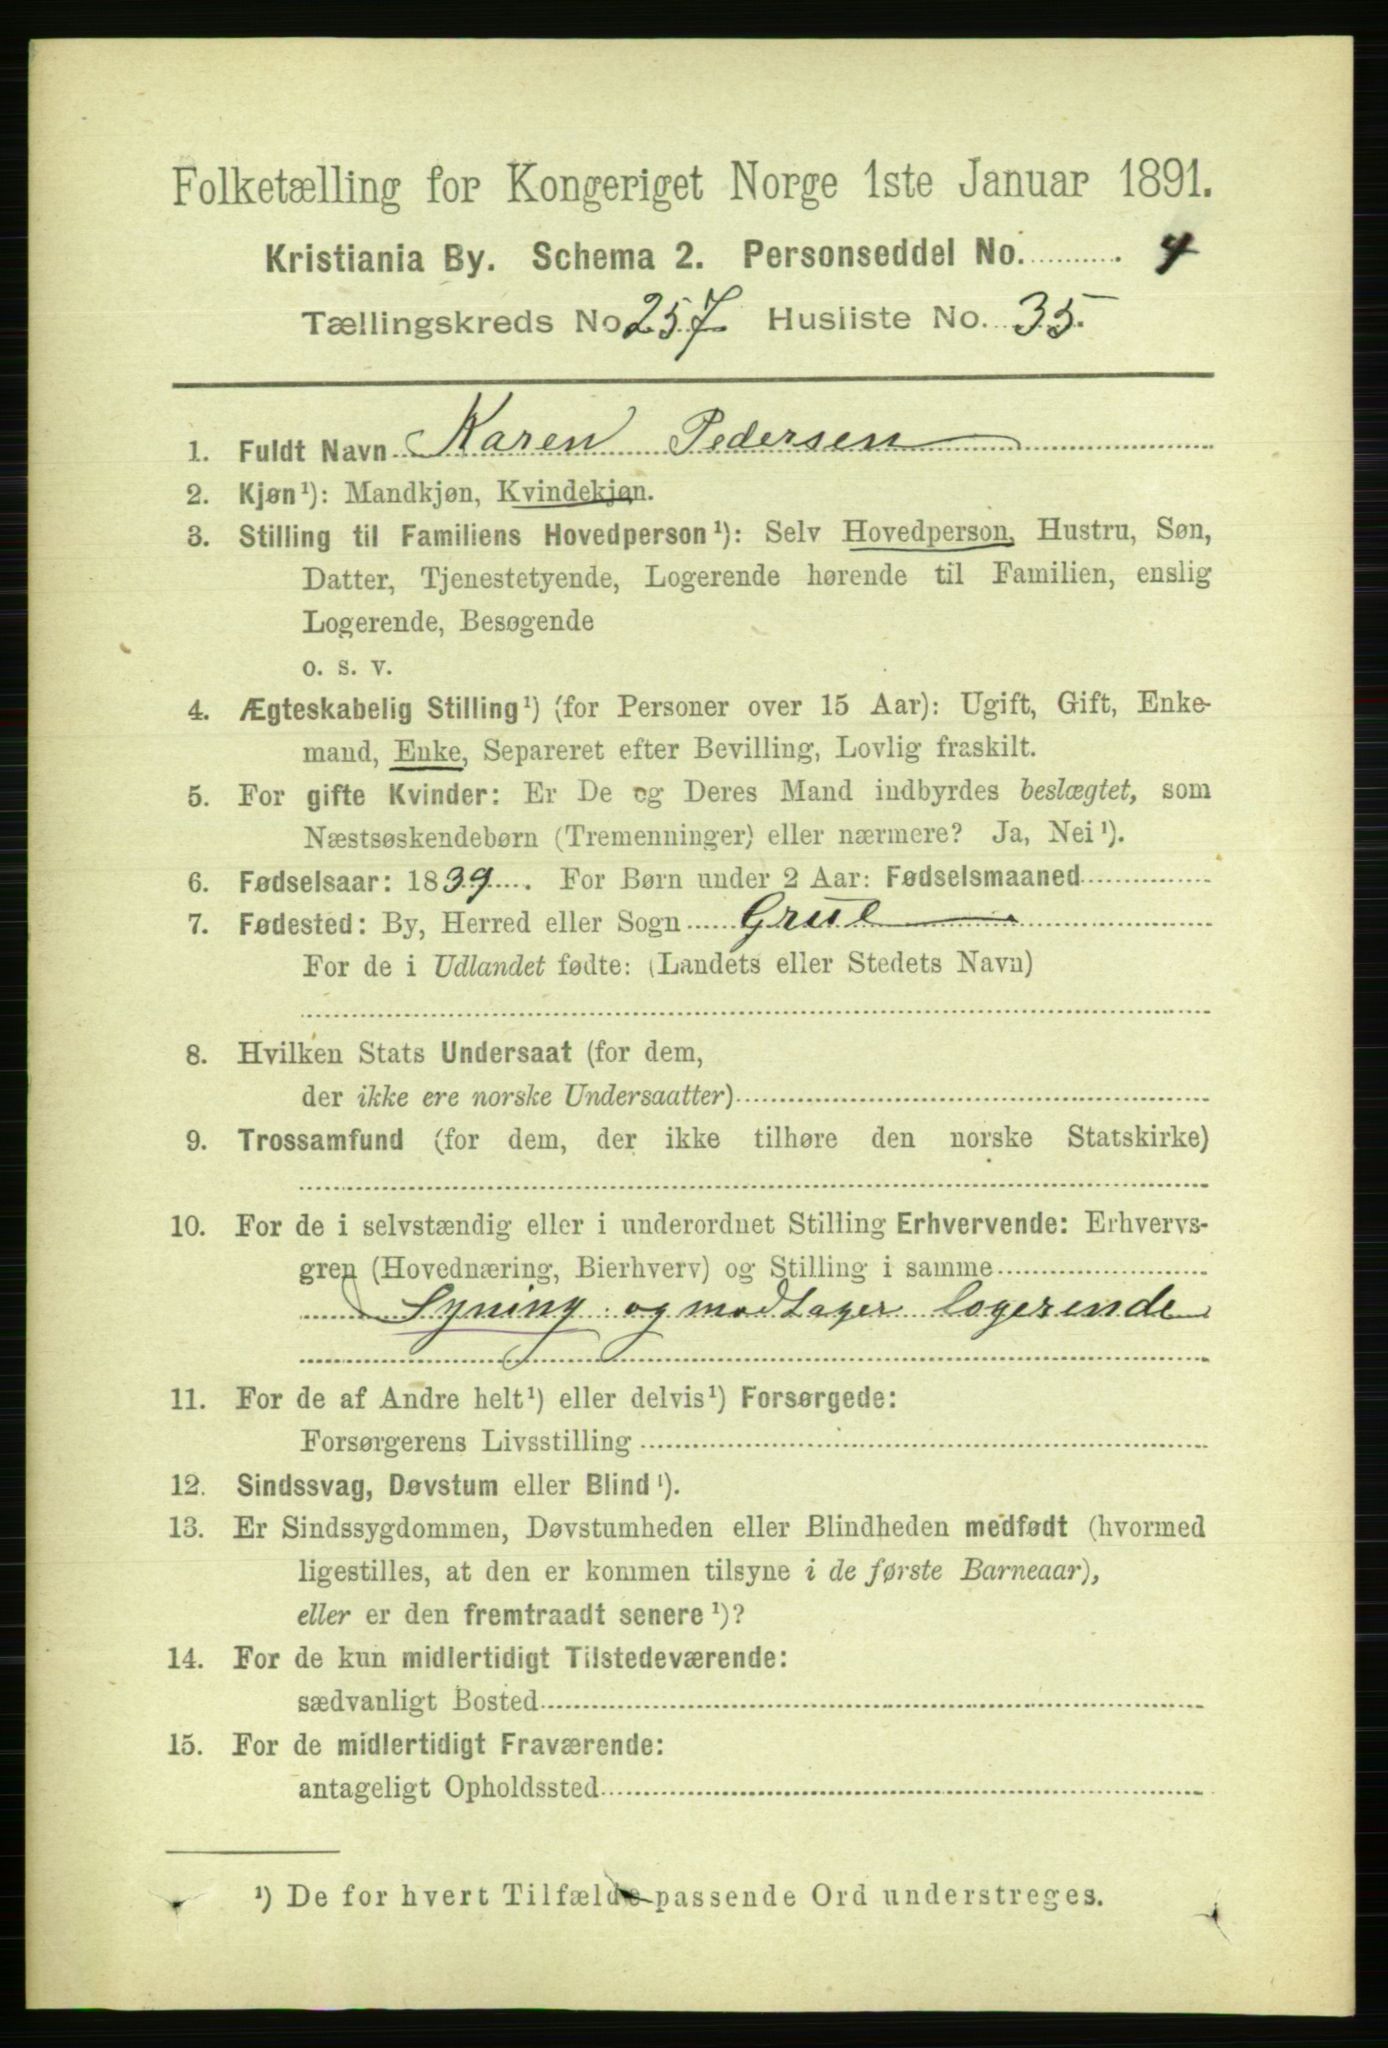 Folketælling for Kongeriget Norge 1ste Januar 1891.
Kristiania By. Schema 2. Personseddel No. 4
Tællingskreds No 257 Husliste No. 35.
1. Fuldt Navn Karen Pedersen
2. Kjøn¹): Mandkjøn, Kvindekjøn.
3. Stilling til Familiens Hovedperson¹): Selv Hovedperson, Hustru, Søn,
Datter, Tjenestetyende, Logerende hørende til Familien, enslig
Logerende, Besøgende
o. s. v.
4. Ægteskabelig Stilling¹) (for Personer over 15 Aar): Ugift, Gift, Enke-
mand, Enke, Separeret efter Bevilling, Lovlig fraskilt.
5. For gifte Kvinder: Er De og Deres Mand indbyrdes beslægtet, som
Næstsøskendebørn (Tremenninger) eller nærmere? Ja, Nei¹).
6. Fødselsaar: 1839. For Børn under 2 Aar: Fødselsmaaned
7. Fødested: By, Herred eller Sogn Grue
For de i Udlandet fødte: (Landets eller Stedets Navn)
8. Hvilken Stats Undersaat (for dem,
der ikke ere norske Undersaatter)
9. Trossamfund (for dem, der ikke tilhøre den norske Statskirke)
10. For de i selvstændig eller i underordnet Stilling Erhvervende: Erhvervs-
gren (Hovednæring, Bierhverv) og Stilling i samme
Syning og modtager logerende
11. For de af Andre helt¹) eller delvis¹) Forsørgede:
Forsørgerens Livsstilling
12. Sindssvag, Døvstum eller Blind¹).
13. Er Sindssygdommen, Døvstumheden eller Blindheden medfødt (hvormed
ligestilles, at den er kommen tilsyne i de første Barneaar),
eller er den fremtraadt senere¹)?
14. For de kun midlertidigt Tilstedeværende:
sædvanligt Bosted
15. For de midlertidigt Fraværende:
antageligt Opholdssted
¹) De for hvert Tilfælde passende Ord understreges.